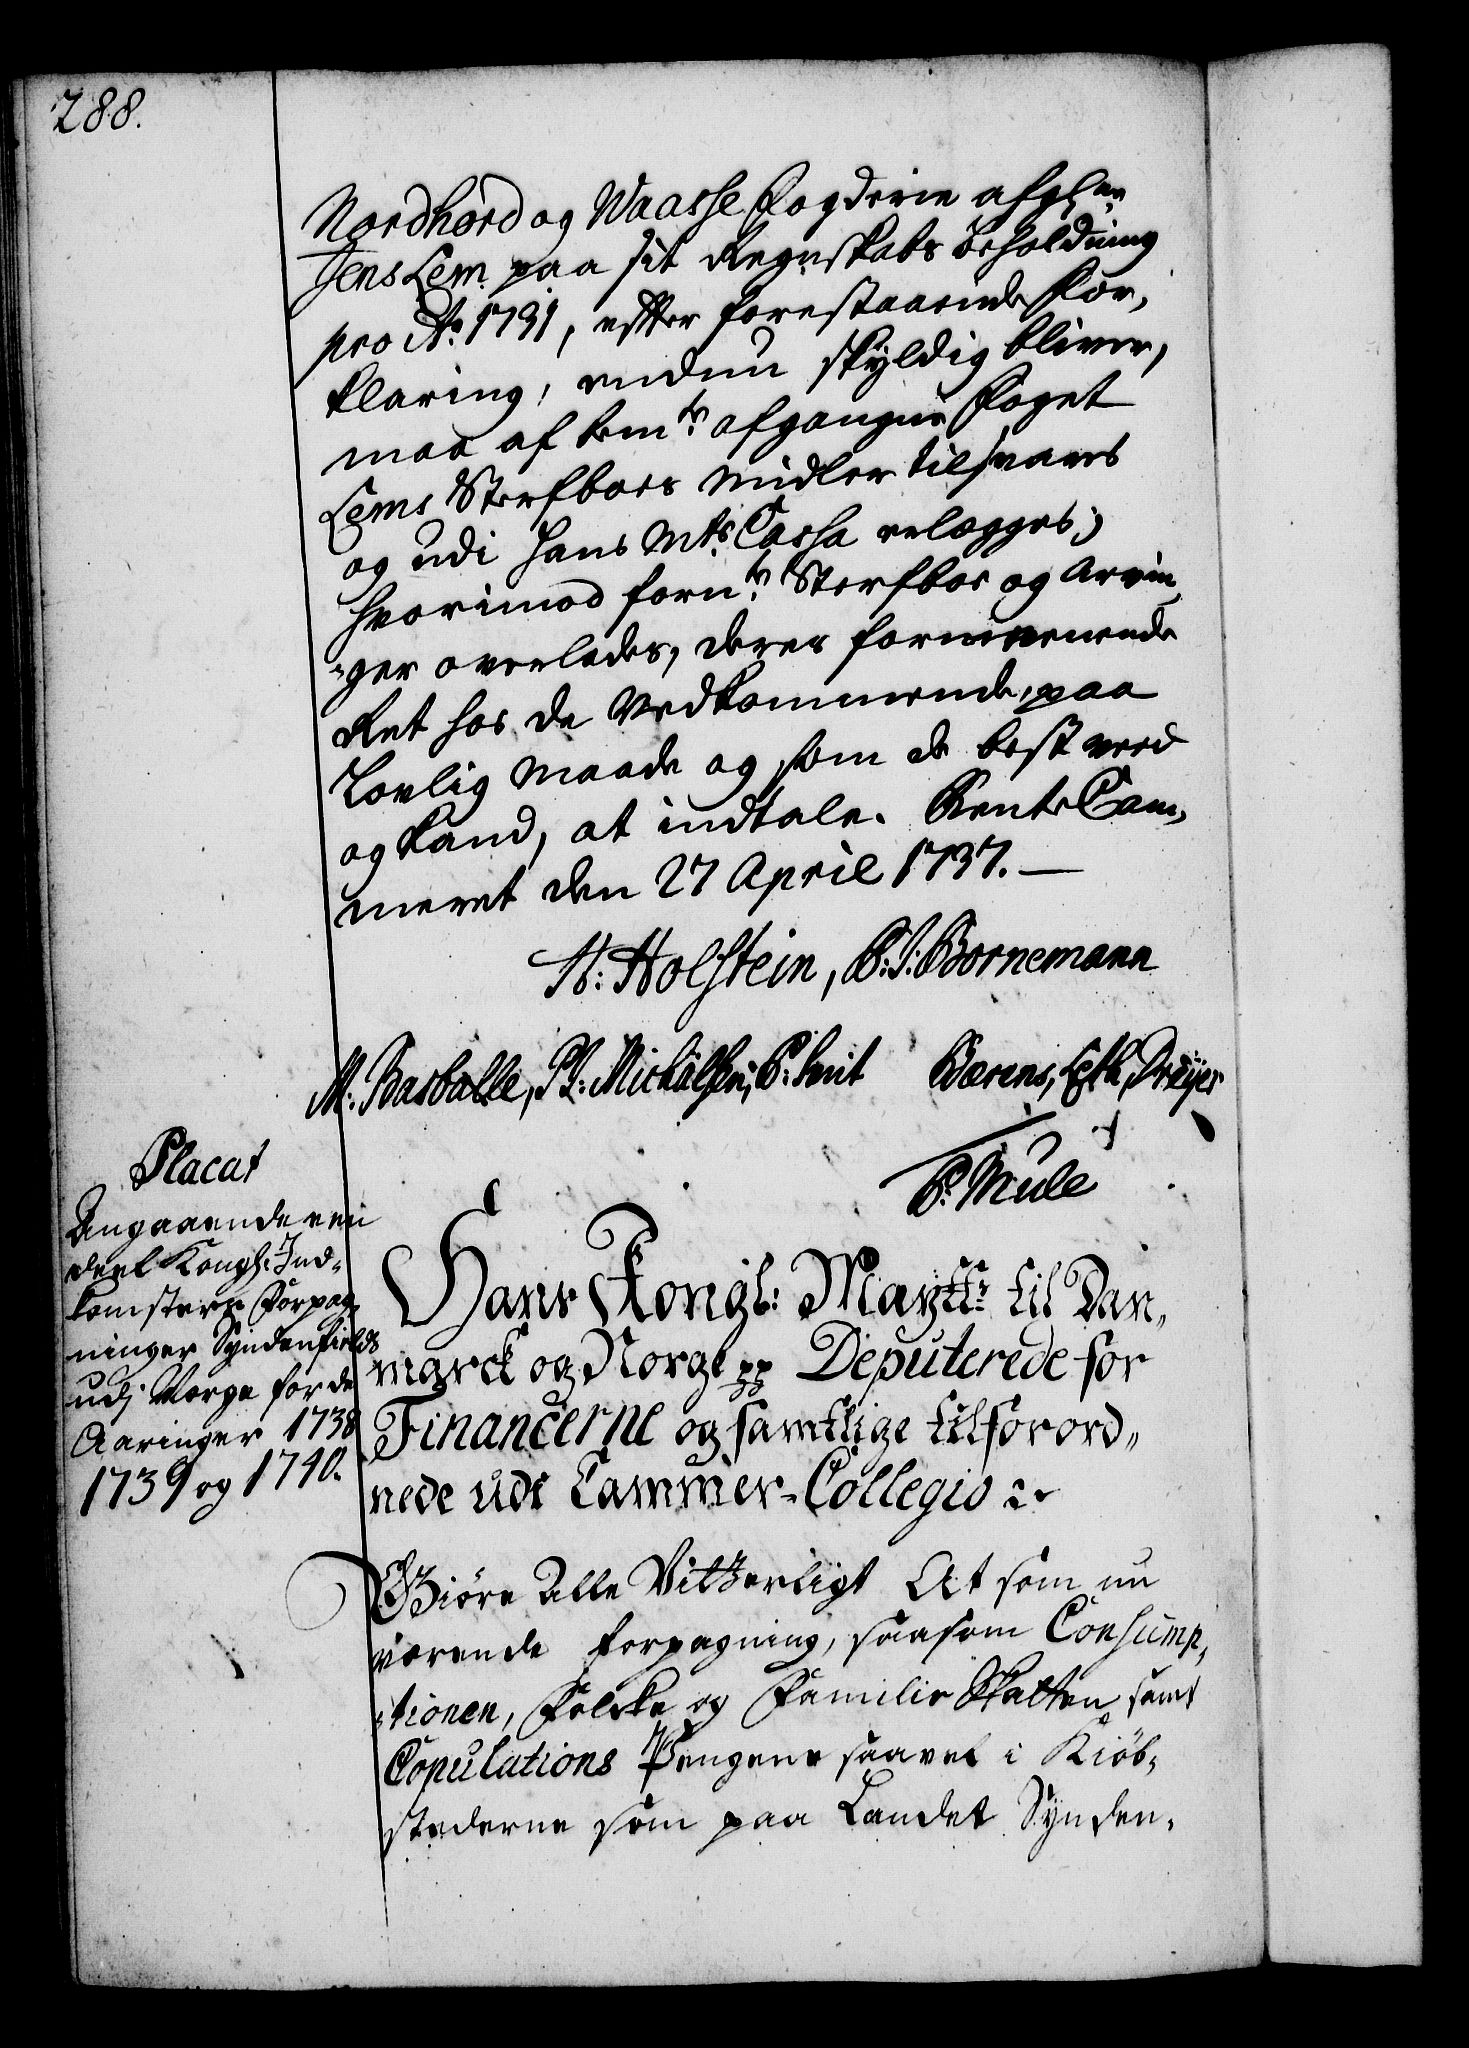 288.
Nordhord og Waasse Fogderie afg:
Jens Lem paa sit Regnskabs Beholdning
pro Ao. 1731, efter forestaaende For,
klaring, endnu skyldig bliver,
maa af bemte. afgangne Foget
Lems Sterfboes Midler tilsvares
og udi Hans Mts. Cassa erlægges;
hvorimod fornte. Sterfboe og Arvin,
"ger overlades, deres formeenende
Ret hos de Vedkommende, paa
Lovlig Maade og som de best veed
og kand, at indtale. Rente Cam,
meret den 27 April 1737.—
H: Holstein, P: J: Bornemann
M: Basballe, PJ: Michälsen, C: Smit Bærens, Leth, Dreyer
P: Mule
Placat
Angaaende een
deel Kongl: Ind-
komsters Forpag,
ninger Syndenfields
udj Norge for de
Aaringer 1738
1739 og 1740.
Hans Kongl: Maytts. til Dan,,
marck og Norge pp Deputerede for
Financerne og samtlige tilforord,,
nede udi Cammer-Collegio
Giøre Alle Vitterligt At som nu
værende forpagning, saasom Consump,
"tionen, Folcke og Familie Skatten samt
Copulations Pengene saavel i Kiøb,
stæderne som paa Landet Synden,